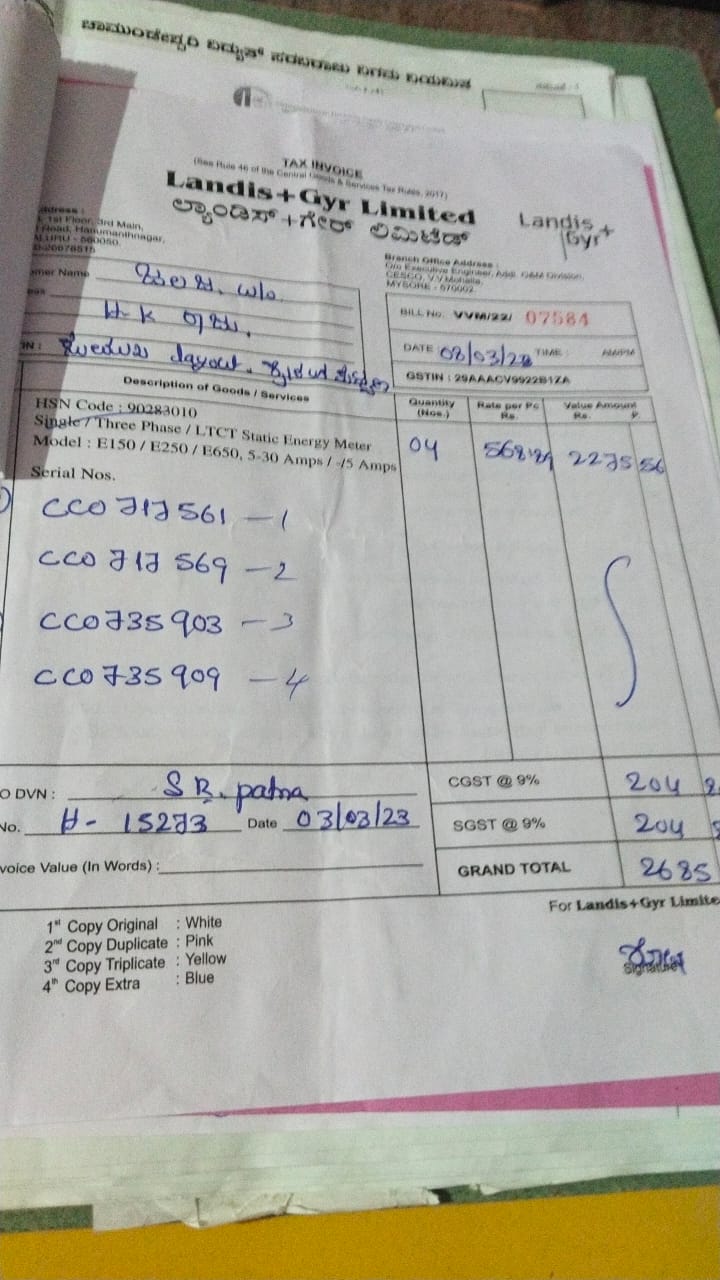 ಚಾಮುಂಡೇಶ್ವರಿ ವಿದ್ಯುತ್ ಸರಬರಾಜು ನಿಗಮ ನಿಯಮಿತ
TAX INVOICE
(See Rule 46 of the Central Goods & Services Tax Rules, 2017)
Landis+Gyr Limited
ಲ್ಯಾಂಡಿಸ್+ಗೇರ್ ಲಿಮಿಟೆಡ್
Landis+
Gyr+
Address :
1st Floor, 3rd Main,
Road, Hanumanthnagar,
ALURU - 560050.
Branch Office Address :
O/o Executive Engineer, Addl. O&M Division,
CESCO, V.V.Mohalla,
MYSORE - 570002
omer Name
w/o
H K
BILL No. VVM/22/ 07584
DATE 08/03/23 TIME : AM/PM
GSTIN : 29AAACV9922B1ZA
layout.
Description of Goods / Services
Quantity (Nos.)
Rate per Pc Rs.
Value Amount Rs. P.
HSN Code : 90283010
Single / Three Phase / LTCT Static Energy Meter
Model : E150 / E250 / E650, 5-30 Amps / -/5 Amps
04 2275 56
Serial Nos.
CC0717561 - 1
CC0717569 - 2
CC0735903 - 3
CC0735909 - 4
O DVN : S R. patna
CGST @ 9% 204
No. H - 15273 Date 03/03/23
SGST @ 9% 204
voice Value (In Words) :
GRAND TOTAL 2685
For Landis+Gyr Limite
1st Copy Original : White
2nd Copy Duplicate : Pink
3rd Copy Triplicate : Yellow
4th Copy Extra : Blue
Signature